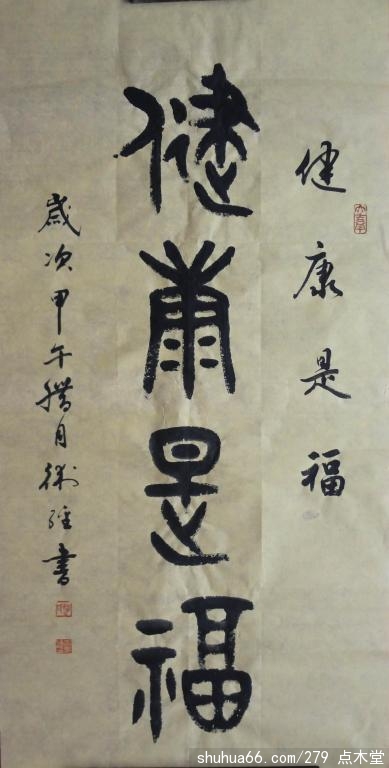 健康是福
健康是福
歲次甲午臘月衛經書
shuhua66.com/279 点木堂